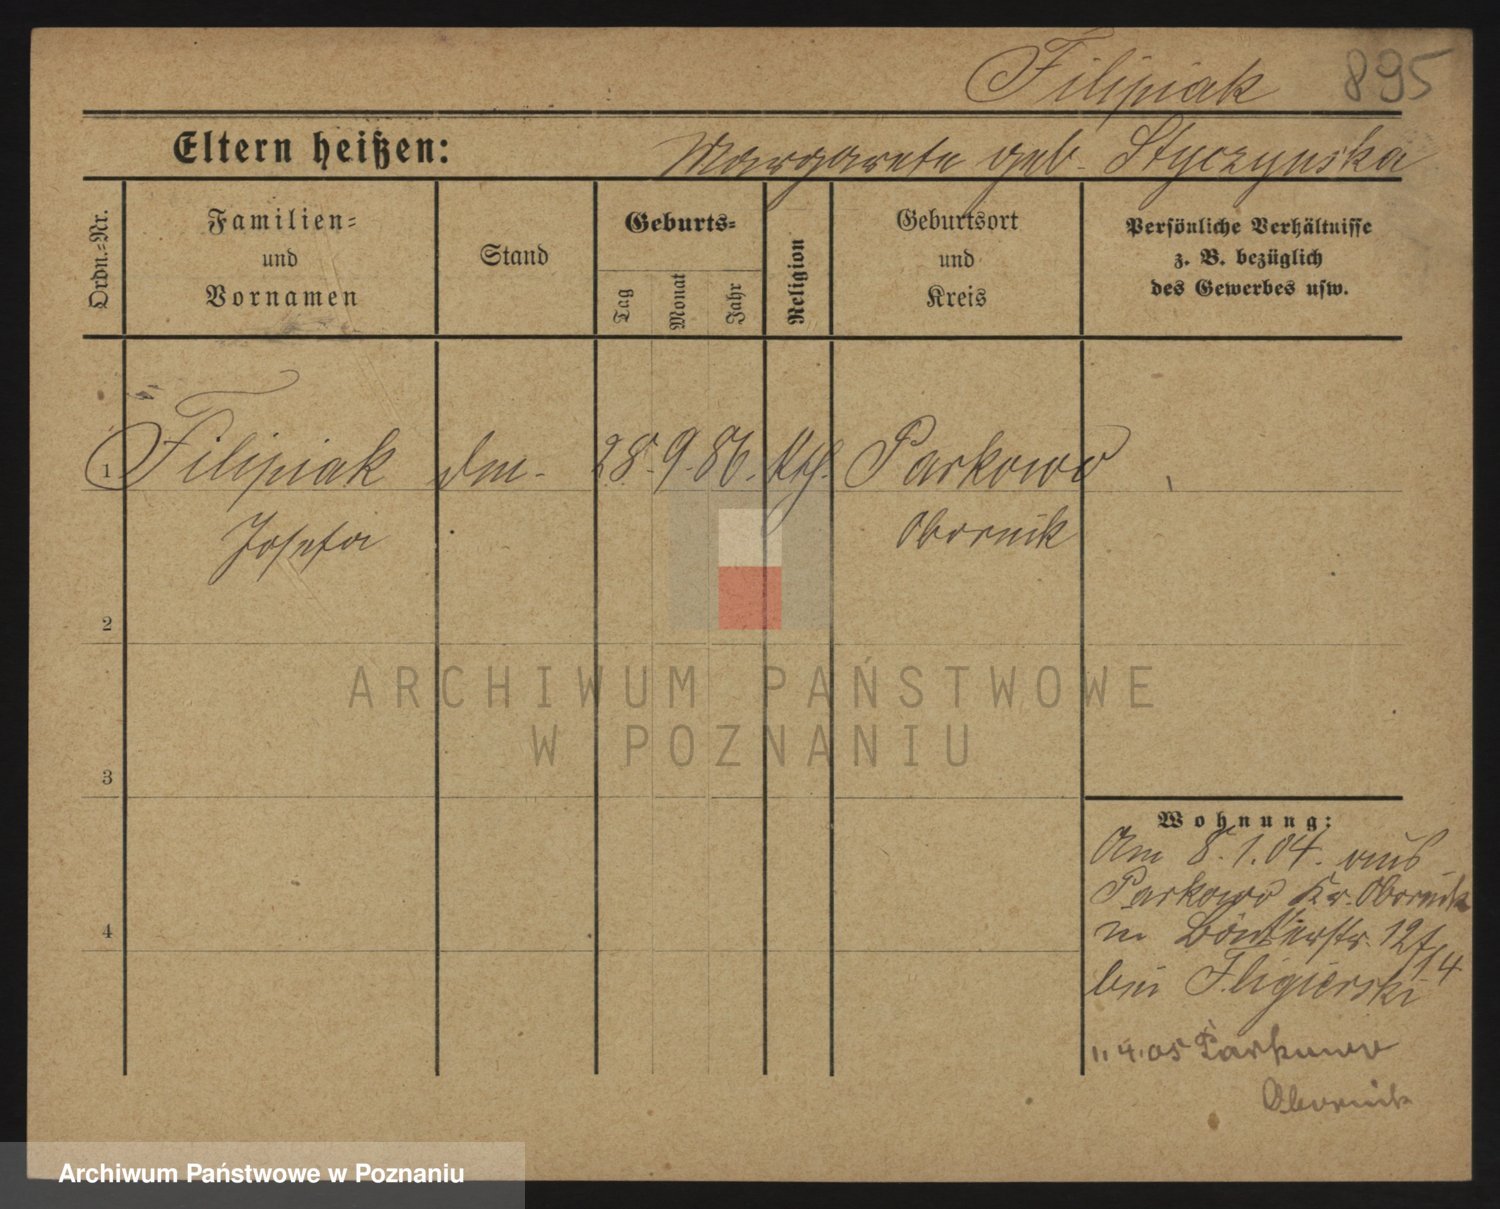 Filipiak 895
Eltern heißen: Margarete geb. Styczynska
Ordn.=Nr.
Familien=
und
Vornamen
Stand
Geburts=
Tag
Monat
Jahr
Religion
Geburtsort
und
Kreis
Persönliche Verhältnisse
z. B. bezüglich
des Gewerbes usw.
1 Filipiak 28. 9. 86. kth. Parkowo
Josefa Obornik
2
3
4
Wohnung:
Am 8.1.04. aus
Parkowo Kr. Obornik
12
bei Fligierski
1.4.05 Parkowo
Obornik
ARCHIWUM PAŃSTWOWE
W POZNANIU
Archiwum Państwowe w Poznaniu